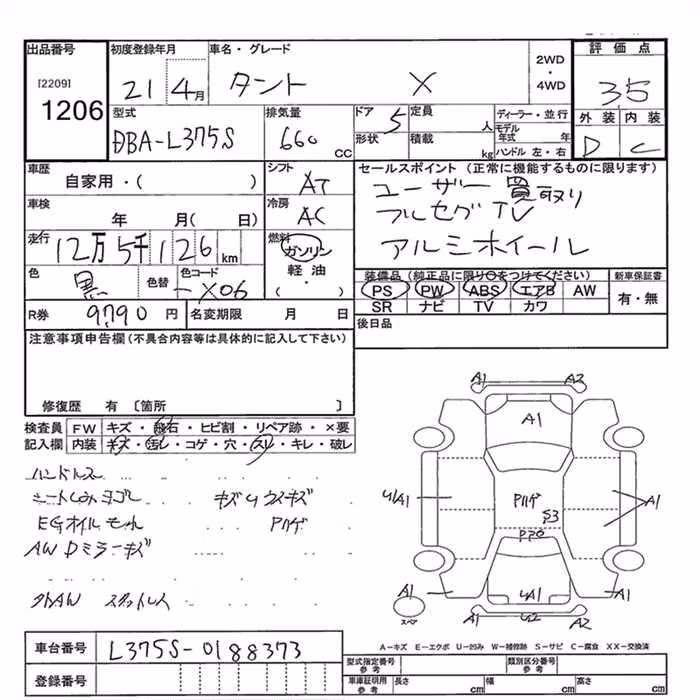 出品番号 初度登録年月 車名・グレード 2WD・4WD 評価点
[2209] 1206 21 4月 タント X 3.5
型式 排気量 ドア 定員 ディーラー・並行 外装 内装
DBA-L375S 660 CC 5 人 モデル年式 年 D C
形状 積載 kg ハンドル 左・右
車歴 シフト セールスポイント (正常に機能するものに限ります)
自家用・( ) AT ユーザー買取り
車検 冷房 フルセグTV
年 月( 日) AC アルミホイール
走行 燃料
12万5千126km ガソリン
軽油・( )
色 色替 色コード 装備品(純正品に限り○をつけてください) 新車保証書
黒 - X06 PS PW ABS エアB AW 有・無
SR ナビ TV カワ
R券 9,790円 名変期限 月 日 後日品
注意事項申告欄(不具合内容等は具体的に記入して下さい)
修復歴 有 〔箇所 〕
検査員 FW キズ・飛石・ヒビ割・リペア跡・×要
記入欄 内装 キズ・汚レ・コゲ・穴・スレ・キレ・破レ
ハンドルスレ
シートしみヨゴレ キズUウスキズ
EGオイルモレ Pハゲ
AW Dミラーキズ
外AW スタットレス
A1 A2
A1
U1A1 Pハゲ A1
S3
P20
A1 U1A1 A1
スペア A1 U2 A2
A-キズ E-エクボ U-凹み W-補修跡 S-サビ C-腐食 XX-交換済
車台番号 L375S-0188373
登録番号
型式指定番号 参考 類別区分番号 参考
車庫証明用 参考 長さ cm 幅 cm 高さ cm